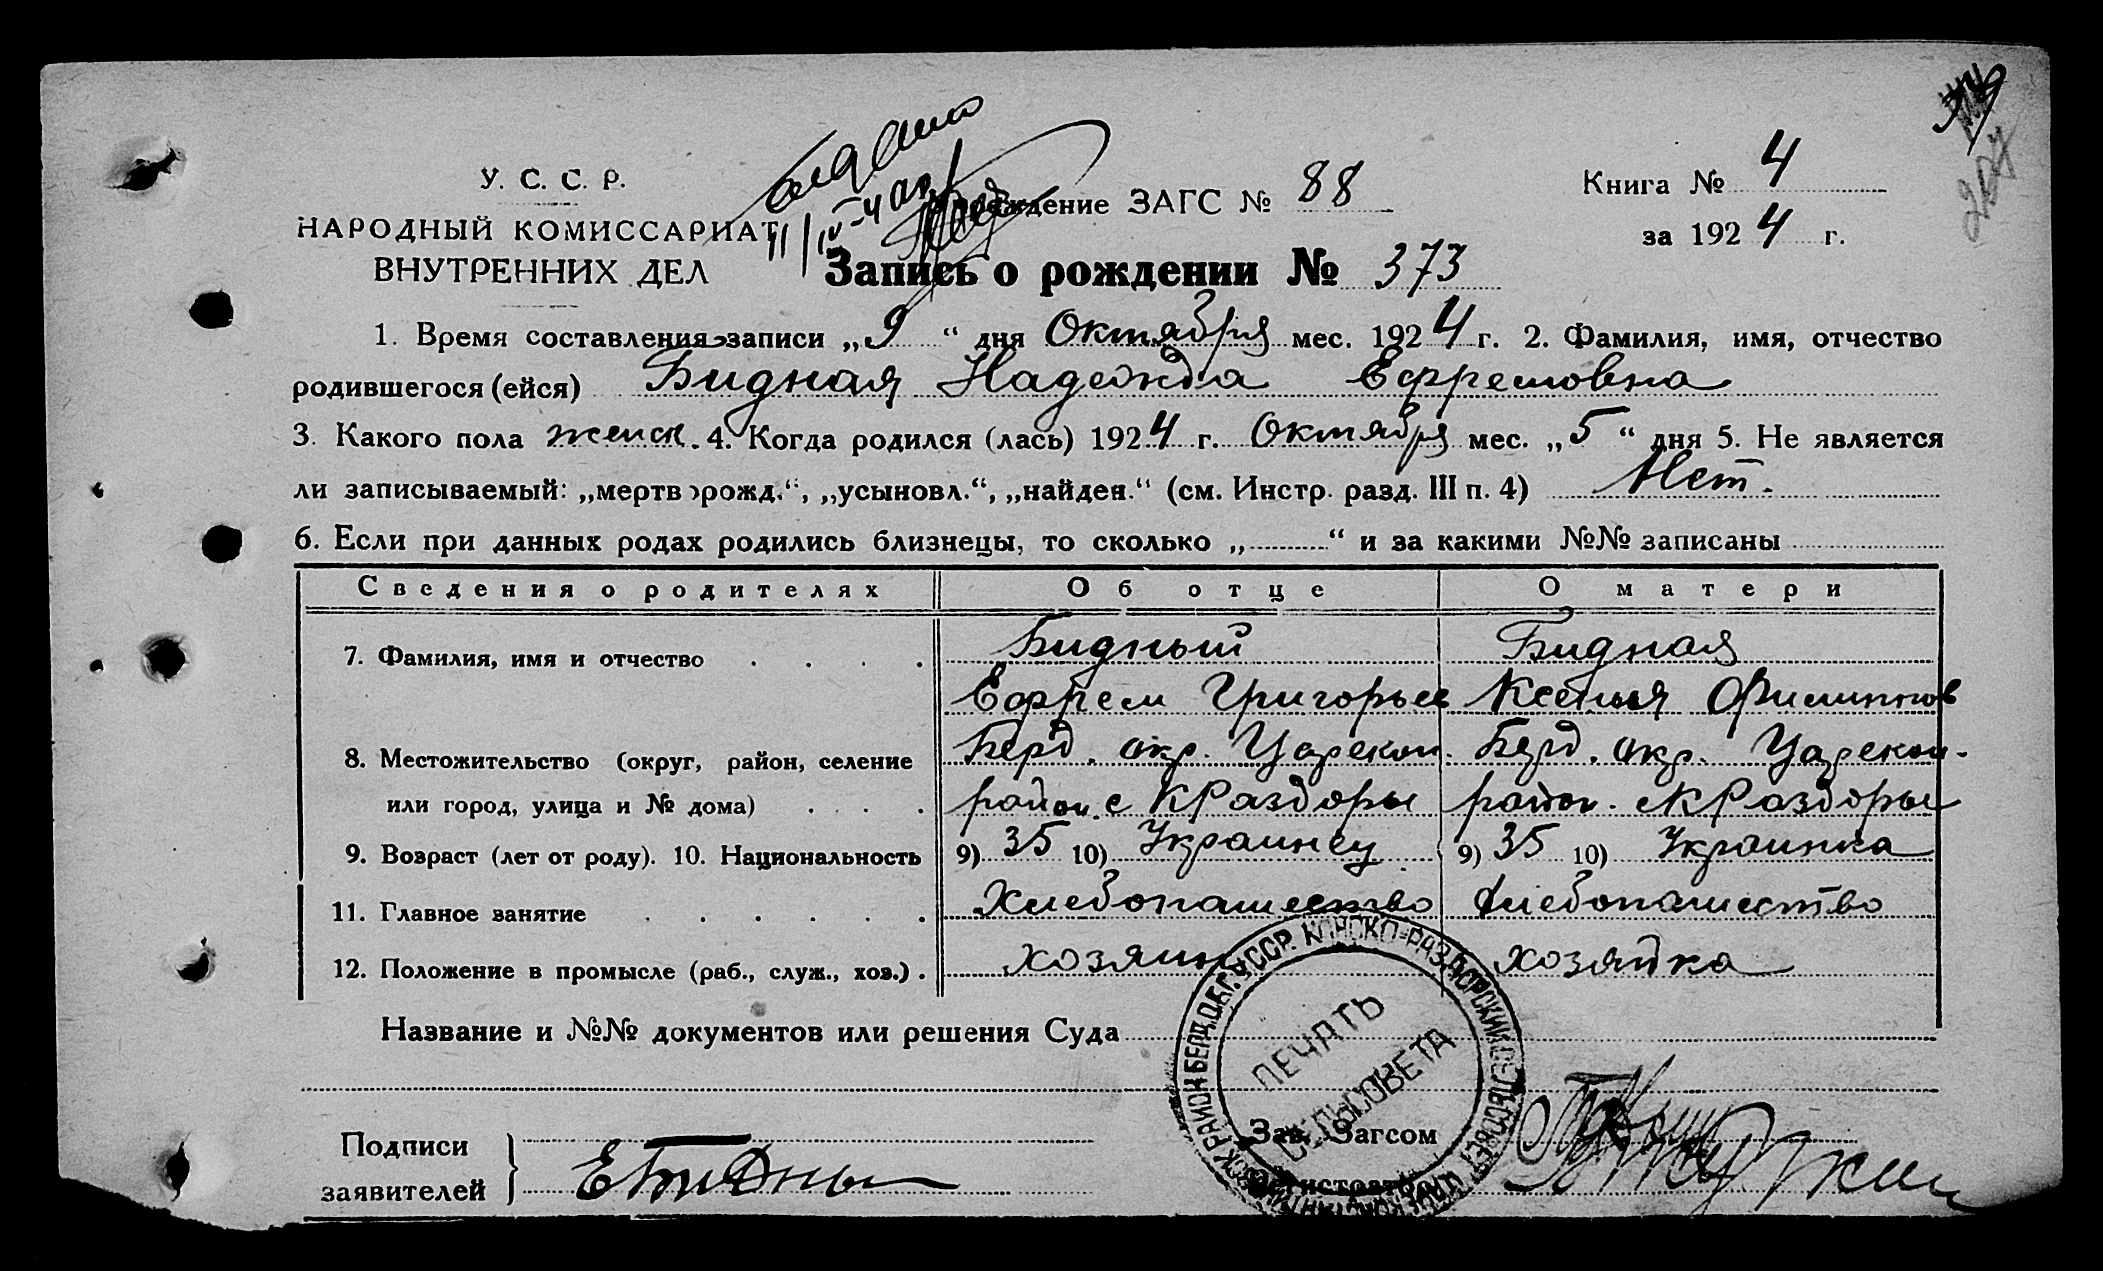 379
207
У. С. С. Р.
НАРОДНЫЙ КОМИССАРИАТ
ВНУТРЕННИХ ДЕЛ
Учреждение ЗАГС № 88
Книга № 4
за 1924 г.
Запись о рождении № 373
1. Время составления записи „9“ дня Октября мес. 1924 г. 2. Фамилия, имя, отчество
родившегося (ейся) Бидная Надежда Ефремовна
3. Какого пола женск. 4. Когда родился (лась) 1924 г. Октября мес. „5“ дня 5. Не является
ли записываемый: „мертворожд.“, „усыновл.“, „найден.“ (см. Инстр. разд. III п. 4) Нет.
6. Если при данных родах родились близнецы, то сколько „..........“ и за какими №№ записаны
Сведения о родителях Об отце О матери
7. Фамилия, имя и отчество Бидный Бидная
Ефрем Григорьев Ксения Филиппов
8. Местожительство (округ, район, селение Берд. окр. Царекон. Берд. окр. Царекон.
или город, улица и № дома) район. с КРаздоры район. с КРаздоры
9. Возраст (лет от роду). 10. Национальность 9) 35 10) Украинец 9) 35 10) Украинка
11. Главное занятие Хлебопашество Хлебопашество
12. Положение в промысле (раб., служ., хоз.) хозяин хозяйка
Название и №№ документов или решения Суда
КОНСКО-РАЗДОРСКИЙ СЕЛЬСОВЕТ
БЕРД. ОКР. УССР.
ПЕЧАТЬ
СЕЛЬСОВЕТА
Подписи
заявителей
Е Бидны
Зав. Загсом
Регистратор